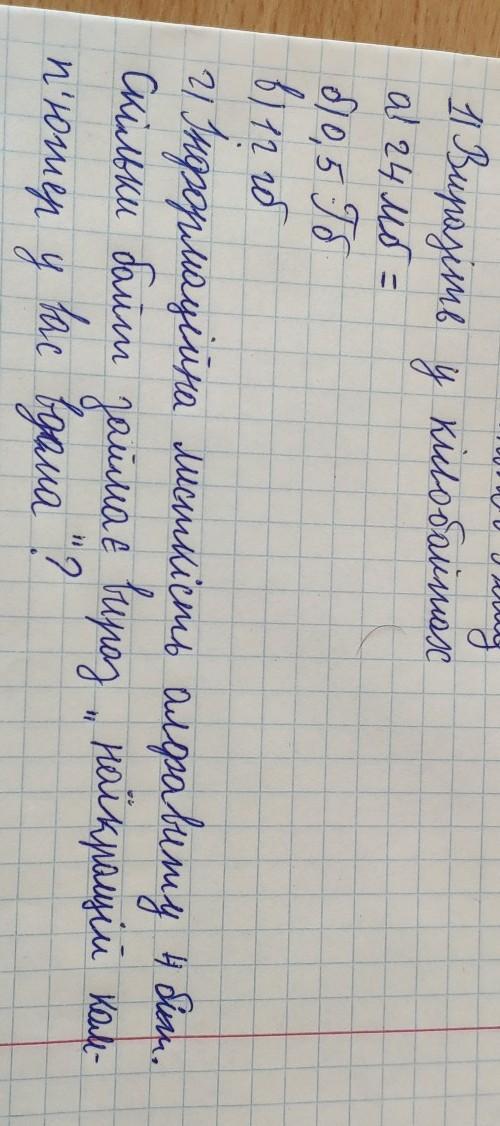 1) Виразіть у кілобайтах
а) 24 Мб =
б) 0,5 Гб
в) 12 гб
2) Інформаційна місткість алфавиту 4 біт.
Скільки байт займає вираз „найкращій ком-
п'ютер у вас вдома"?